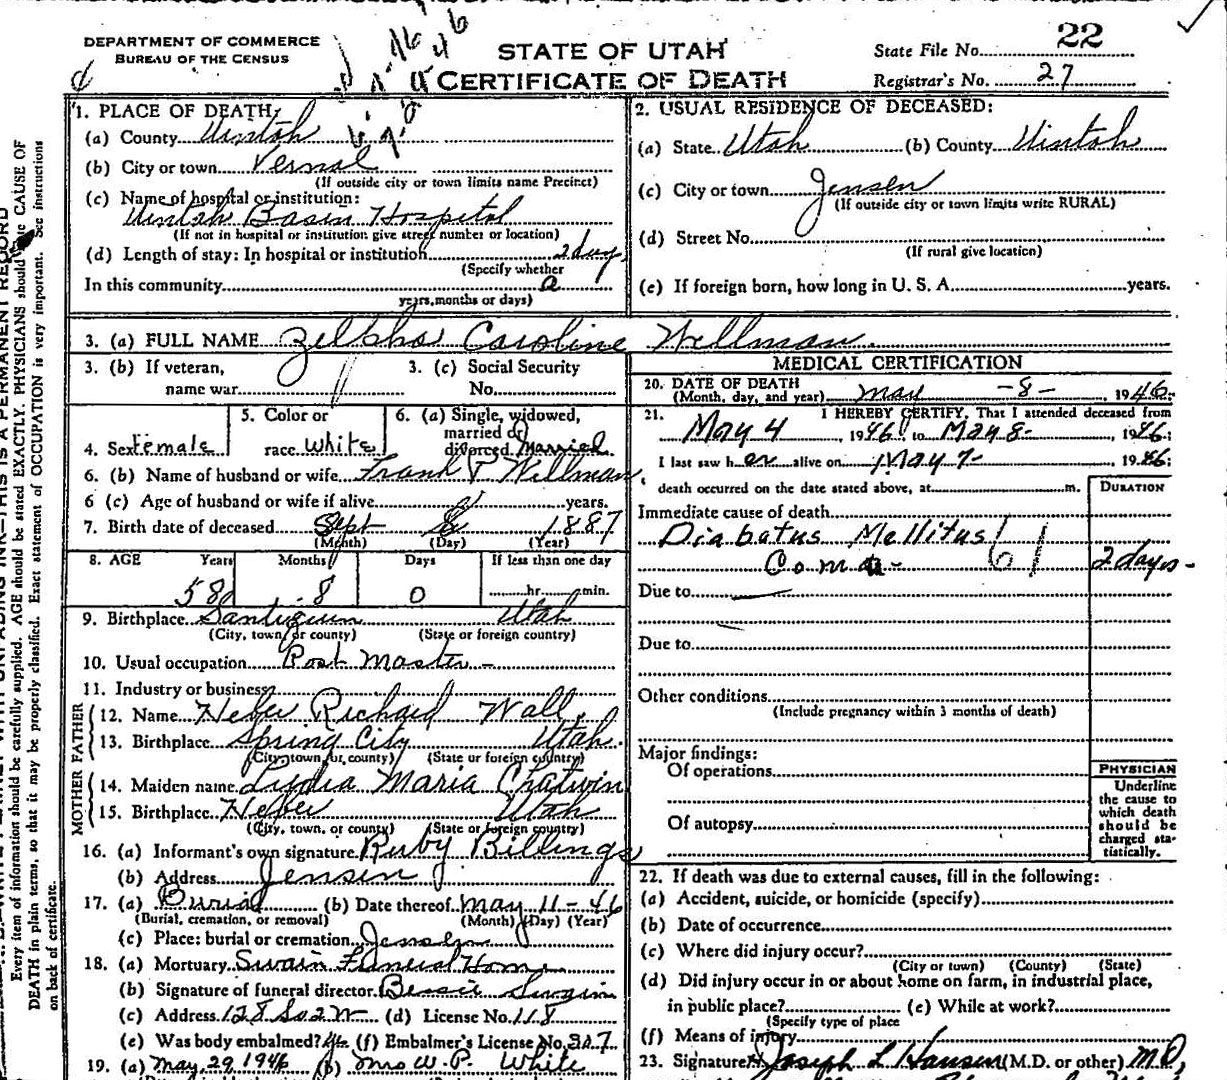 DEPARTMENT OF COMMERCE
BUREAU OF THE CENSUS
STATE OF UTAH
CERTIFICATE OF DEATH
State File No. 22
Registrar's No. 27
1. PLACE OF DEATH:
(a) County Uintah
(b) City or town Vernal
(If outside city or town limits name Precinct)
(c) Name of hospital or institution:
Uintah Basin Hospital
(If not in hospital or institution give street number or location)
(d) Length of stay: In hospital or institution 2 days
(Specify whether
In this community
years, months or days)
2. USUAL RESIDENCE OF DECEASED:
(a) State Utah (b) County Uintah
(c) City or town Jensen
(If outside city or town limits write RURAL)
(d) Street No.
(If rural give location)
(e) If foreign born, how long in U. S. A. years.
3. (a) FULL NAME Zelpha Caroline Willman
3. (b) If veteran,
name war
3. (c) Social Security
No.
4. Sex Female
5. Color or
race White
6. (a) Single, widowed,
married or
divorced Married
6. (b) Name of husband or wife Frank P Willman
6 (c) Age of husband or wife if alive years.
7. Birth date of deceased Sept 8 1887
(Month) (Day) (Year)
8. AGE Years Months Days If less than one day
58 8 0 hr. min.
9. Birthplace Utah
(City, town, or county) (State or foreign country)
10. Usual occupation Post Master
11. Industry or business
FATHER
12. Name Heber Richard Wall
13. Birthplace Spring City Utah
(City, town, or county) (State or foreign country)
MOTHER
14. Maiden name Lydia Maria Chatwin
15. Birthplace Heber Utah
(City, town, or county) (State or foreign country)
16. (a) Informant's own signature Ruby Billings
(b) Address Jensen
17. (a) Burial (b) Date thereof May 11-46
(Burial, cremation, or removal) (Month) (Day) (Year)
(c) Place: burial or cremation Jensen
18. (a) Mortuary Swain Funeral Home
(b) Signature of funeral director Bessie Swain
(c) Address 128 So 2 W (d) License No. 118
(e) Was body embalmed? (f) Embalmer's License No. 327
19. (a) May 29 1946 (b) Mrs W. P. White
MEDICAL CERTIFICATION
20. DATE OF DEATH
(Month, day, and year) May -8- , 1946
21. I HEREBY CERTIFY, That I attended deceased from
May 4 , 1946, to May 8- , 1946;
I last saw her alive on May 7- , 1946;
death occurred on the date stated above, at m.
DURATION
Immediate cause of death
Diabatus Mellitus 61
Coma- 2 days-
Due to
Due to
Other conditions
(Include pregnancy within 3 months of death)
Major findings:
Of operations
Of autopsy
PHYSICIAN
Underline
the cause to
which death
should be
charged sta-
tistically.
22. If death was due to external causes, fill in the following:
(a) Accident, suicide, or homicide (specify)
(b) Date of occurrence
(c) Where did injury occur?
(City or town) (County) (State)
(d) Did injury occur in or about home on farm, in industrial place,
in public place? (e) While at work?
(Specify type of place
(f) Means of injury
23. Signature Joseph L Hansen (M.D. or other) M.D.
Every item of information should be carefully supplied. AGE should be stated EXACTLY. PHYSICIANS should state CAUSE OF
DEATH in plain terms, so that it may be properly classified. Exact statement of OCCUPATION is very important. See instructions
on back of certificate.
THIS IS A PERMANENT RECORD